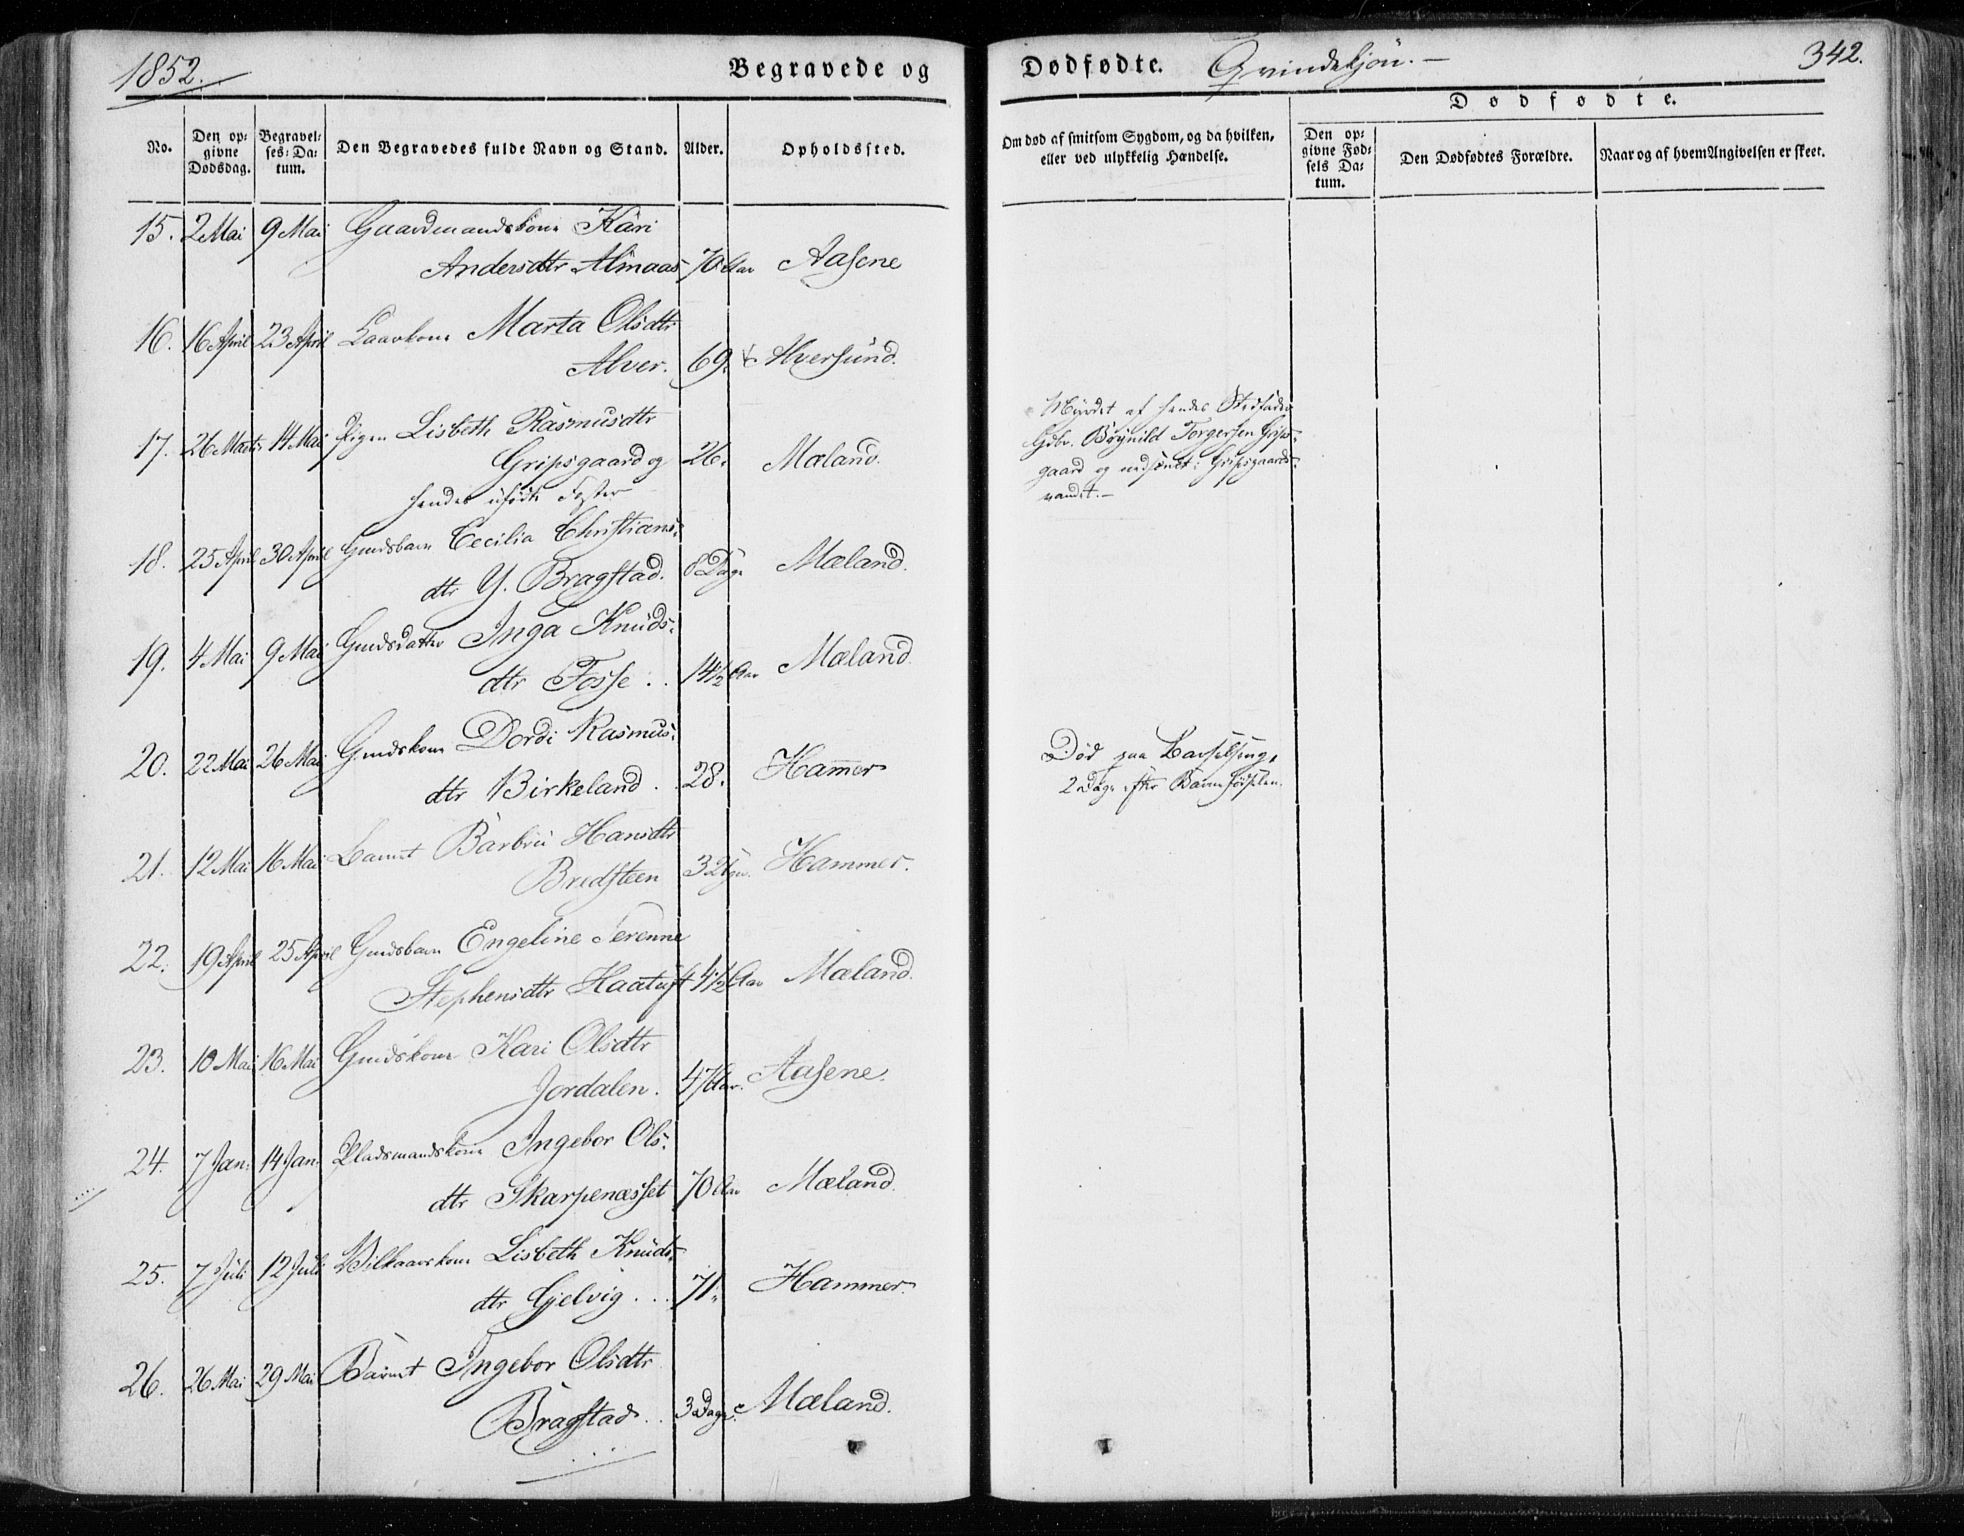 1852.
Begravede og
Dødfødte. Qvindekjön. —
342.
Dødfødte.
No.
Den op-
givne
Dødsdag.
Begravel-
ses-Da-
tum.
Den Begravedes fulde Navn og Stand.
Alder.
Opholdssted.
Om død af smitsom Sygdom, og da hvilken,
eller ved ulykkelig Hændelse.
Den op-
givne Fød-
sels Da-
tum.
Den Dødfødtes Forældre.
Naar og af hvem Angivelsen er skeet.
15. 2 Mai 9 Mai Gaardmandskone Kari
Andersdtr Almaas 70 Aar Aasene
16. 16 April 23 April Kaarkone Marta Olsdtr
Alver. 69. Alversund.
17. 26 Marts 14 Mai Pigen Lisbeth Rasmusdtr
Gripsgaard og 26. Mæland.
hendes ufödte Foster
Myrdet af hendes Stedfader
Gdbr. Brynild Torgersen Grips-
gaard og nedsænket i Gripsgaards-
vandet. —
18. 25 April 30 April Gmdsbarn Cecilia Christians-
dtr Y. Bragstad. 8 Dage Mæland.
19. 4 Mai 9 Mai Gmdsdatter Inga Knuds-
dtr Fosse .. 14½ Aar Mæland.
20. 22 Mai 26 Mai Gmdskone Dordi Rasmus-
dtr Birkeland . 28. Hammer
Död paa Barselseng,
2 Dage efter Barnefödselen.
21. 12 Mai 16 Mai Barnet Barbru Hansdtr
Bredsteen 3 Hammer.
22. 19 April 25 April Gmdsbarn Engeline Serenne
Stephensdtr Haatuft 4½ Aar Mæland.
23. 10 Mai 16 Mai Gmdskone Kari Olsdtr
Jordalen. 47 Aar. Aasene.
24. 7 Jan. 14 Jan. Pladsmandskone Ingebor Ols-
dtr Skarpenæsset 70 Aar Mæland.
25. 7 Juli 12 Juli Vilkaarskone Lisbeth Knuds-
dtr Gjelvig ... 71. Hammer.
26. 26 Mai 29 Mai Barnet Ingebor Olsdtr
Bragstad .. 3 Dage. Mæland.